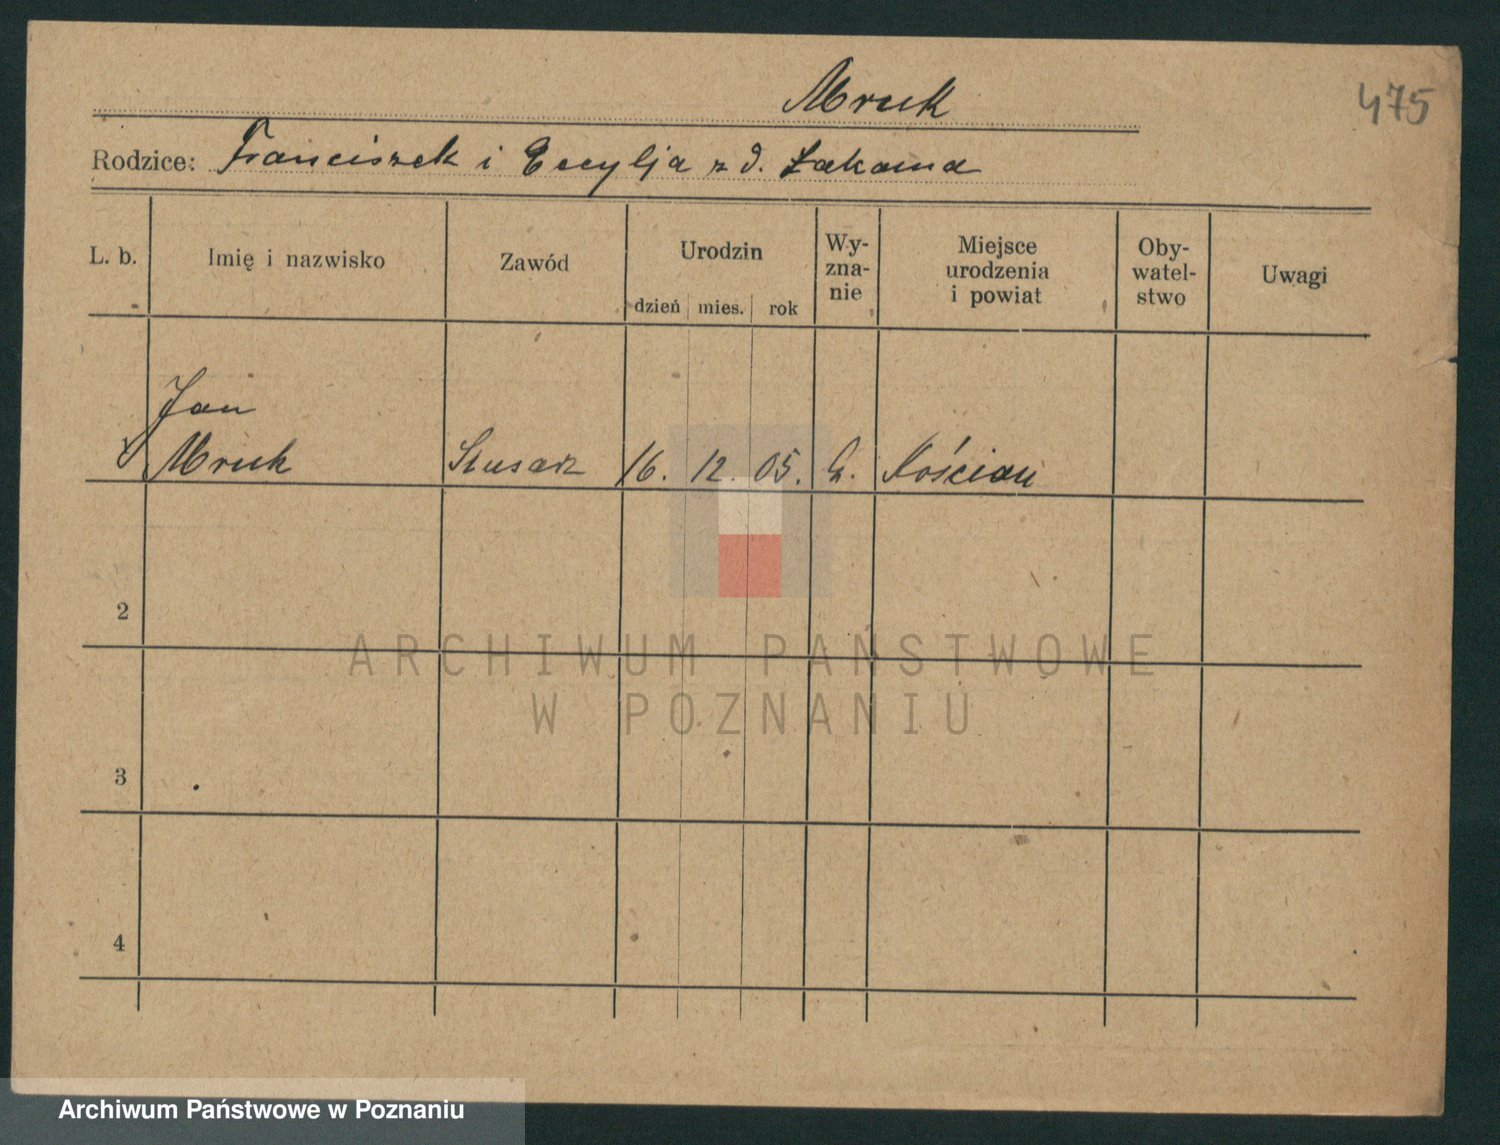 Mruk
475
Rodzice: Franciszek i Cecylja z d. Łakoma
L. b.
Imię i nazwisko
Zawód
Urodzin
dzień mies. rok
Wy-
zna-
nie
Miejsce
urodzenia
i powiat
Oby-
watel-
stwo
Uwagi
Jan
Mruk
Ślusarz
16. 12. 05.
Kościan
2
3
4
ARCHIWUM PAŃSTWOWE
W POZNANIU
Archiwum Państwowe w Poznaniu